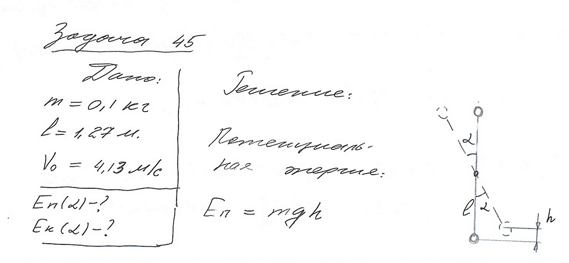 Задача 45
Дано:
m = 0,1 кг
l = 1,27 м.
V₀ = 4,13 м/с
Eп(α)-?
Eк(α)-?
Решение:
Потенциаль-
ная энергия:
Eп = mgh
α
l
α
h